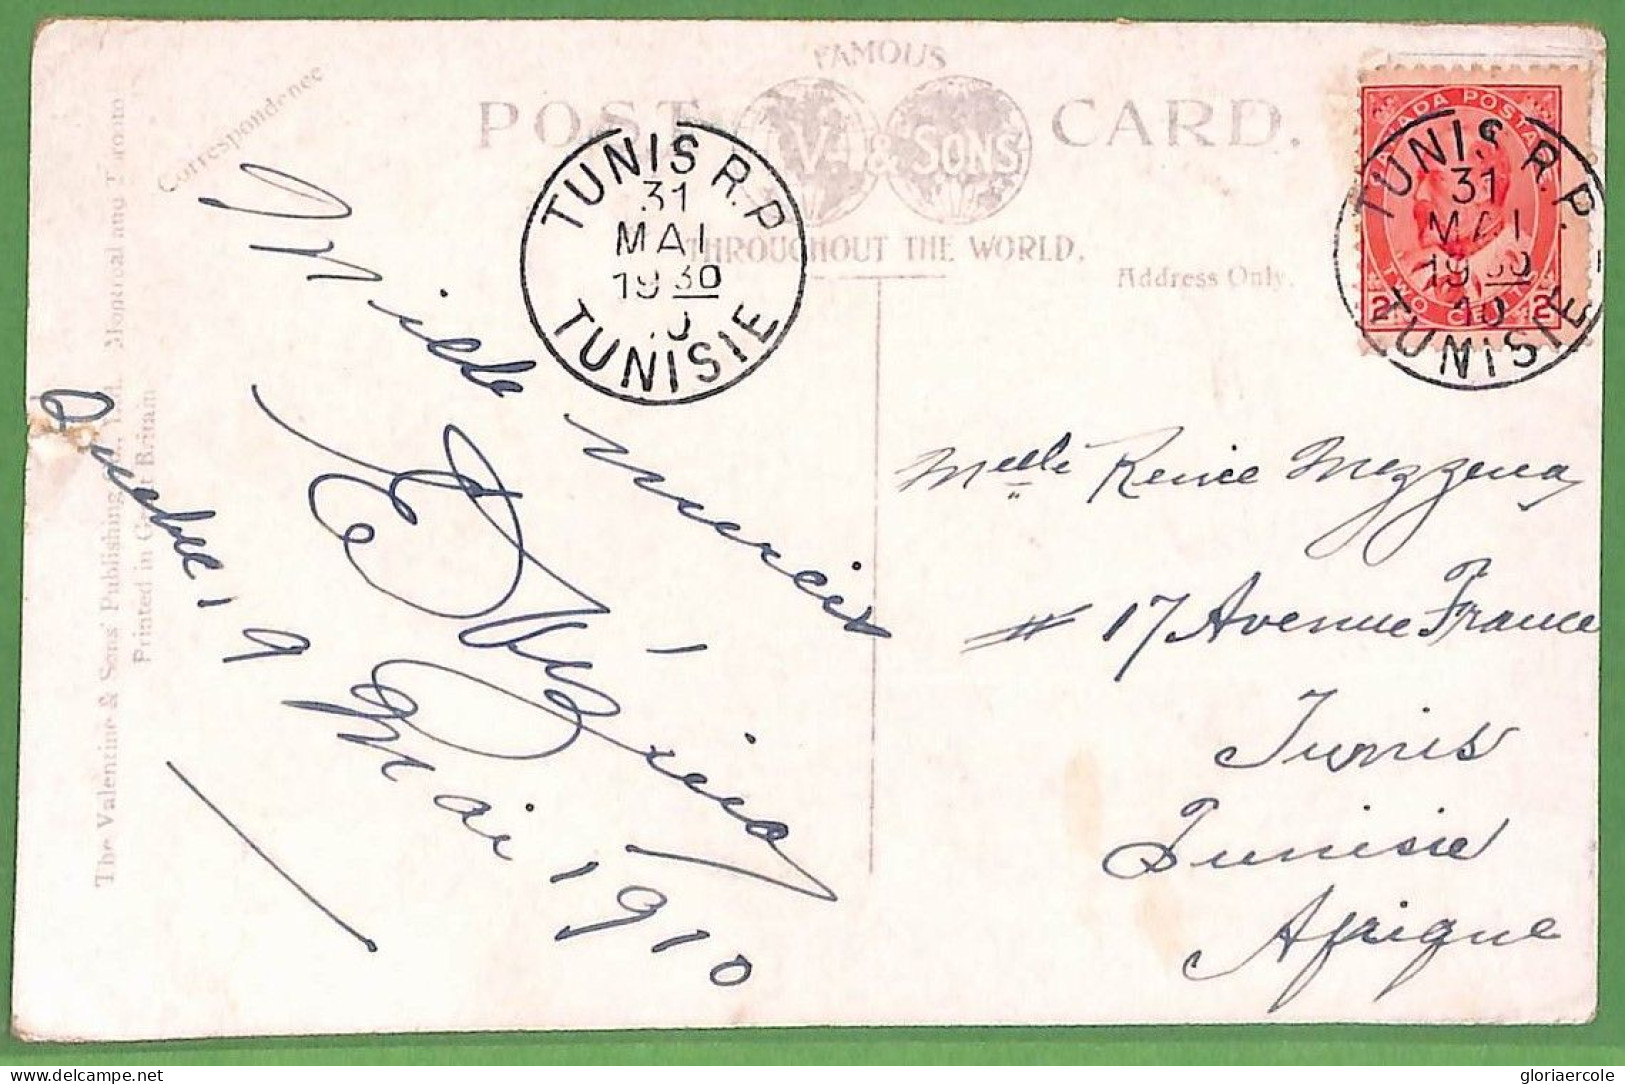 FAMOUS
POST CARD.
V. & SONS
THROUGHOUT THE WORLD.
Correspondence
Address Only.
The Valentine & Sons' Publishing Co., Ltd. Montreal and Toronto
Printed in Great Britain
TUNIS R.P.
31
MAI
1930
10
TUNISIE
CANADA POSTAGE
2 TWO CENTS 2
TUNIS R.P.
31
MAI
1930
10
TUNISIE
Mille
Quebec 19 Mai 1910
Melle Renée Mezzena
# 17 Avenue France
Tunis
Tunisie
Afrique
gloriaercole